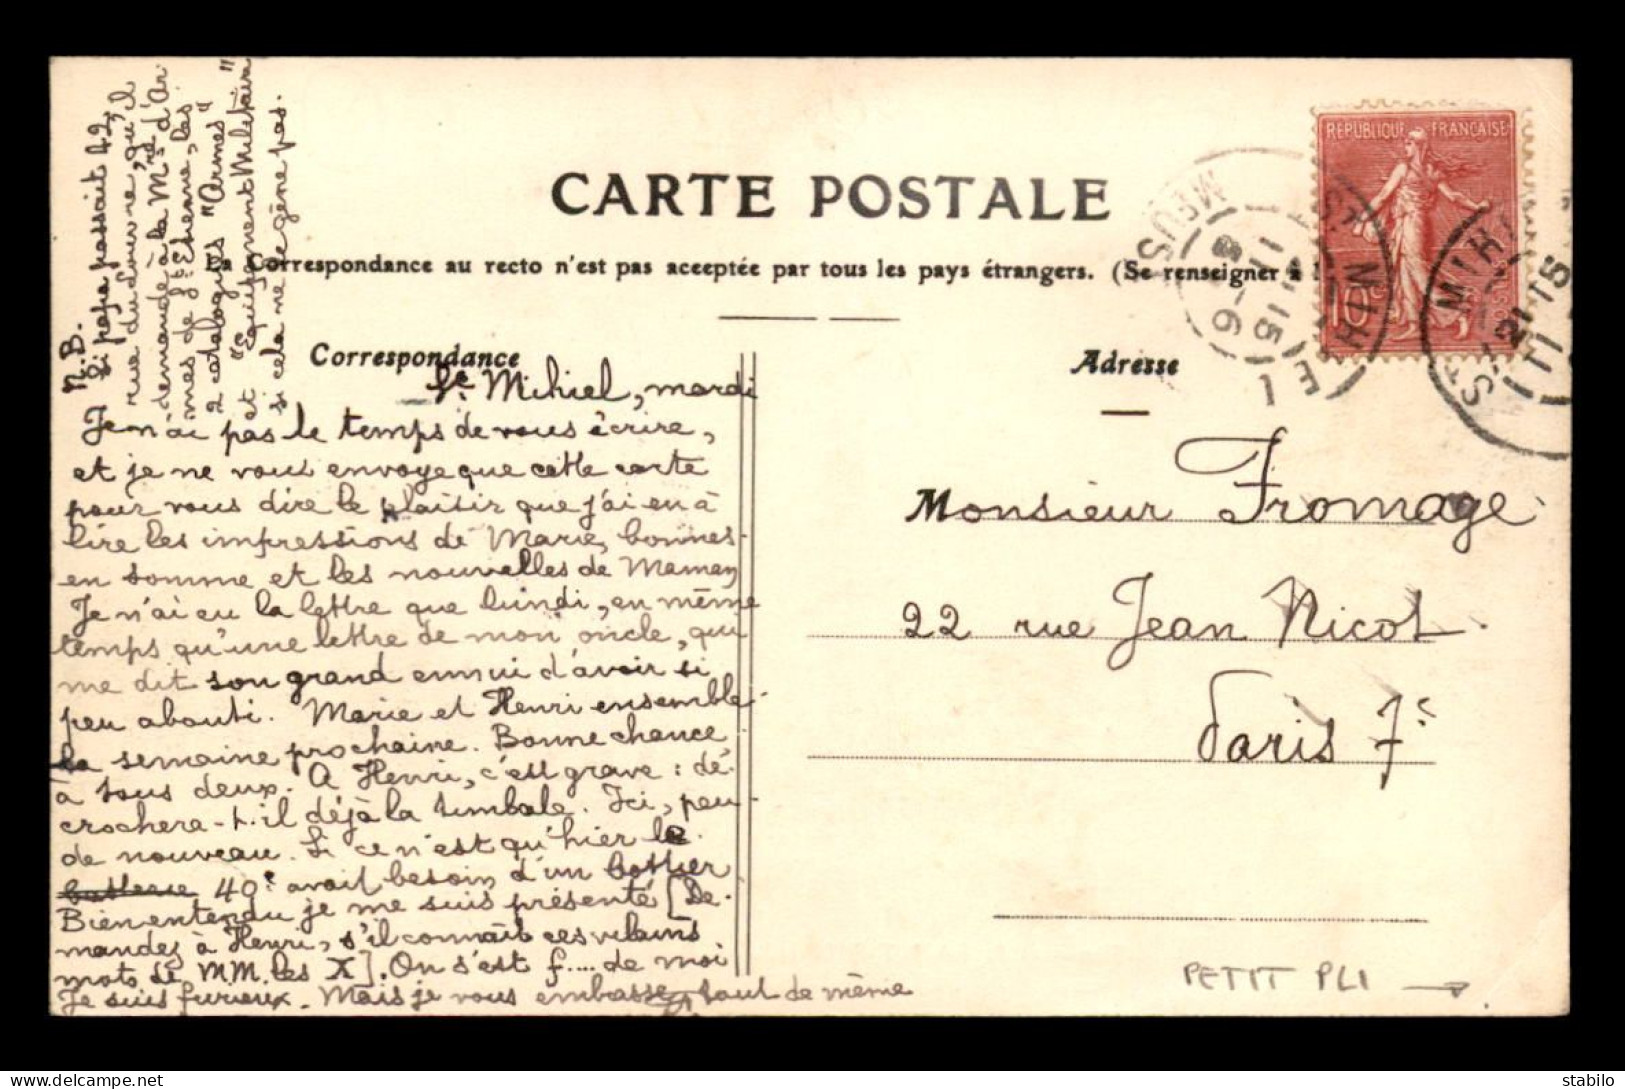 CARTE POSTALE
La Correspondance au recto n'est pas acceptée par tous les pays étrangers. (Se renseigner à
Correspondance
Adresse
RÉPUBLIQUE FRANÇAISE
10c
ST MIHIEL
MEUSE
ST MIHI
N.B.
Si papa passait 42,
rue du Louvre, qu'il
demande à la Mre d'Ar
mes de St Etienne, les
2 catalogues "Armes"
et "Equipement Militaire"
si cela ne le gêne pas.
St Mihiel, mardi
Je n'ai pas le temps de vous écrire,
et je ne vous envoye que cette carte
pour vous dire le plaisir que j'ai eu à
lire les impressions de Marie, bonnes
en somme et les nouvelles de Maman
Je n'ai eu la lettre que lundi, en même
temps qu'une lettre de mon oncle, qui
me dit son grand ennui d'avoir si
peu abouti. Marie et Henri ensemble
la semaine prochaine. Bonne chance
à tous deux. A Henri, c'est grave : dé-
crochera-t-il déjà la timbale. Ici, peu
de nouveau. Si ce n'est qu'hier le
40e avait besoin d'un bottier
Bien entendu je me suis présenté [De-
mandez à Henri, s'il connaît ces vilains
mots de MM. les X]. On s'est f.... de moi
Je suis furieux. Mais je vous embrasse tout de même
Monsieur Fromage
22 rue Jean Nicot.
Paris 7e
PETIT PLI →
stabilo
delcampe.net